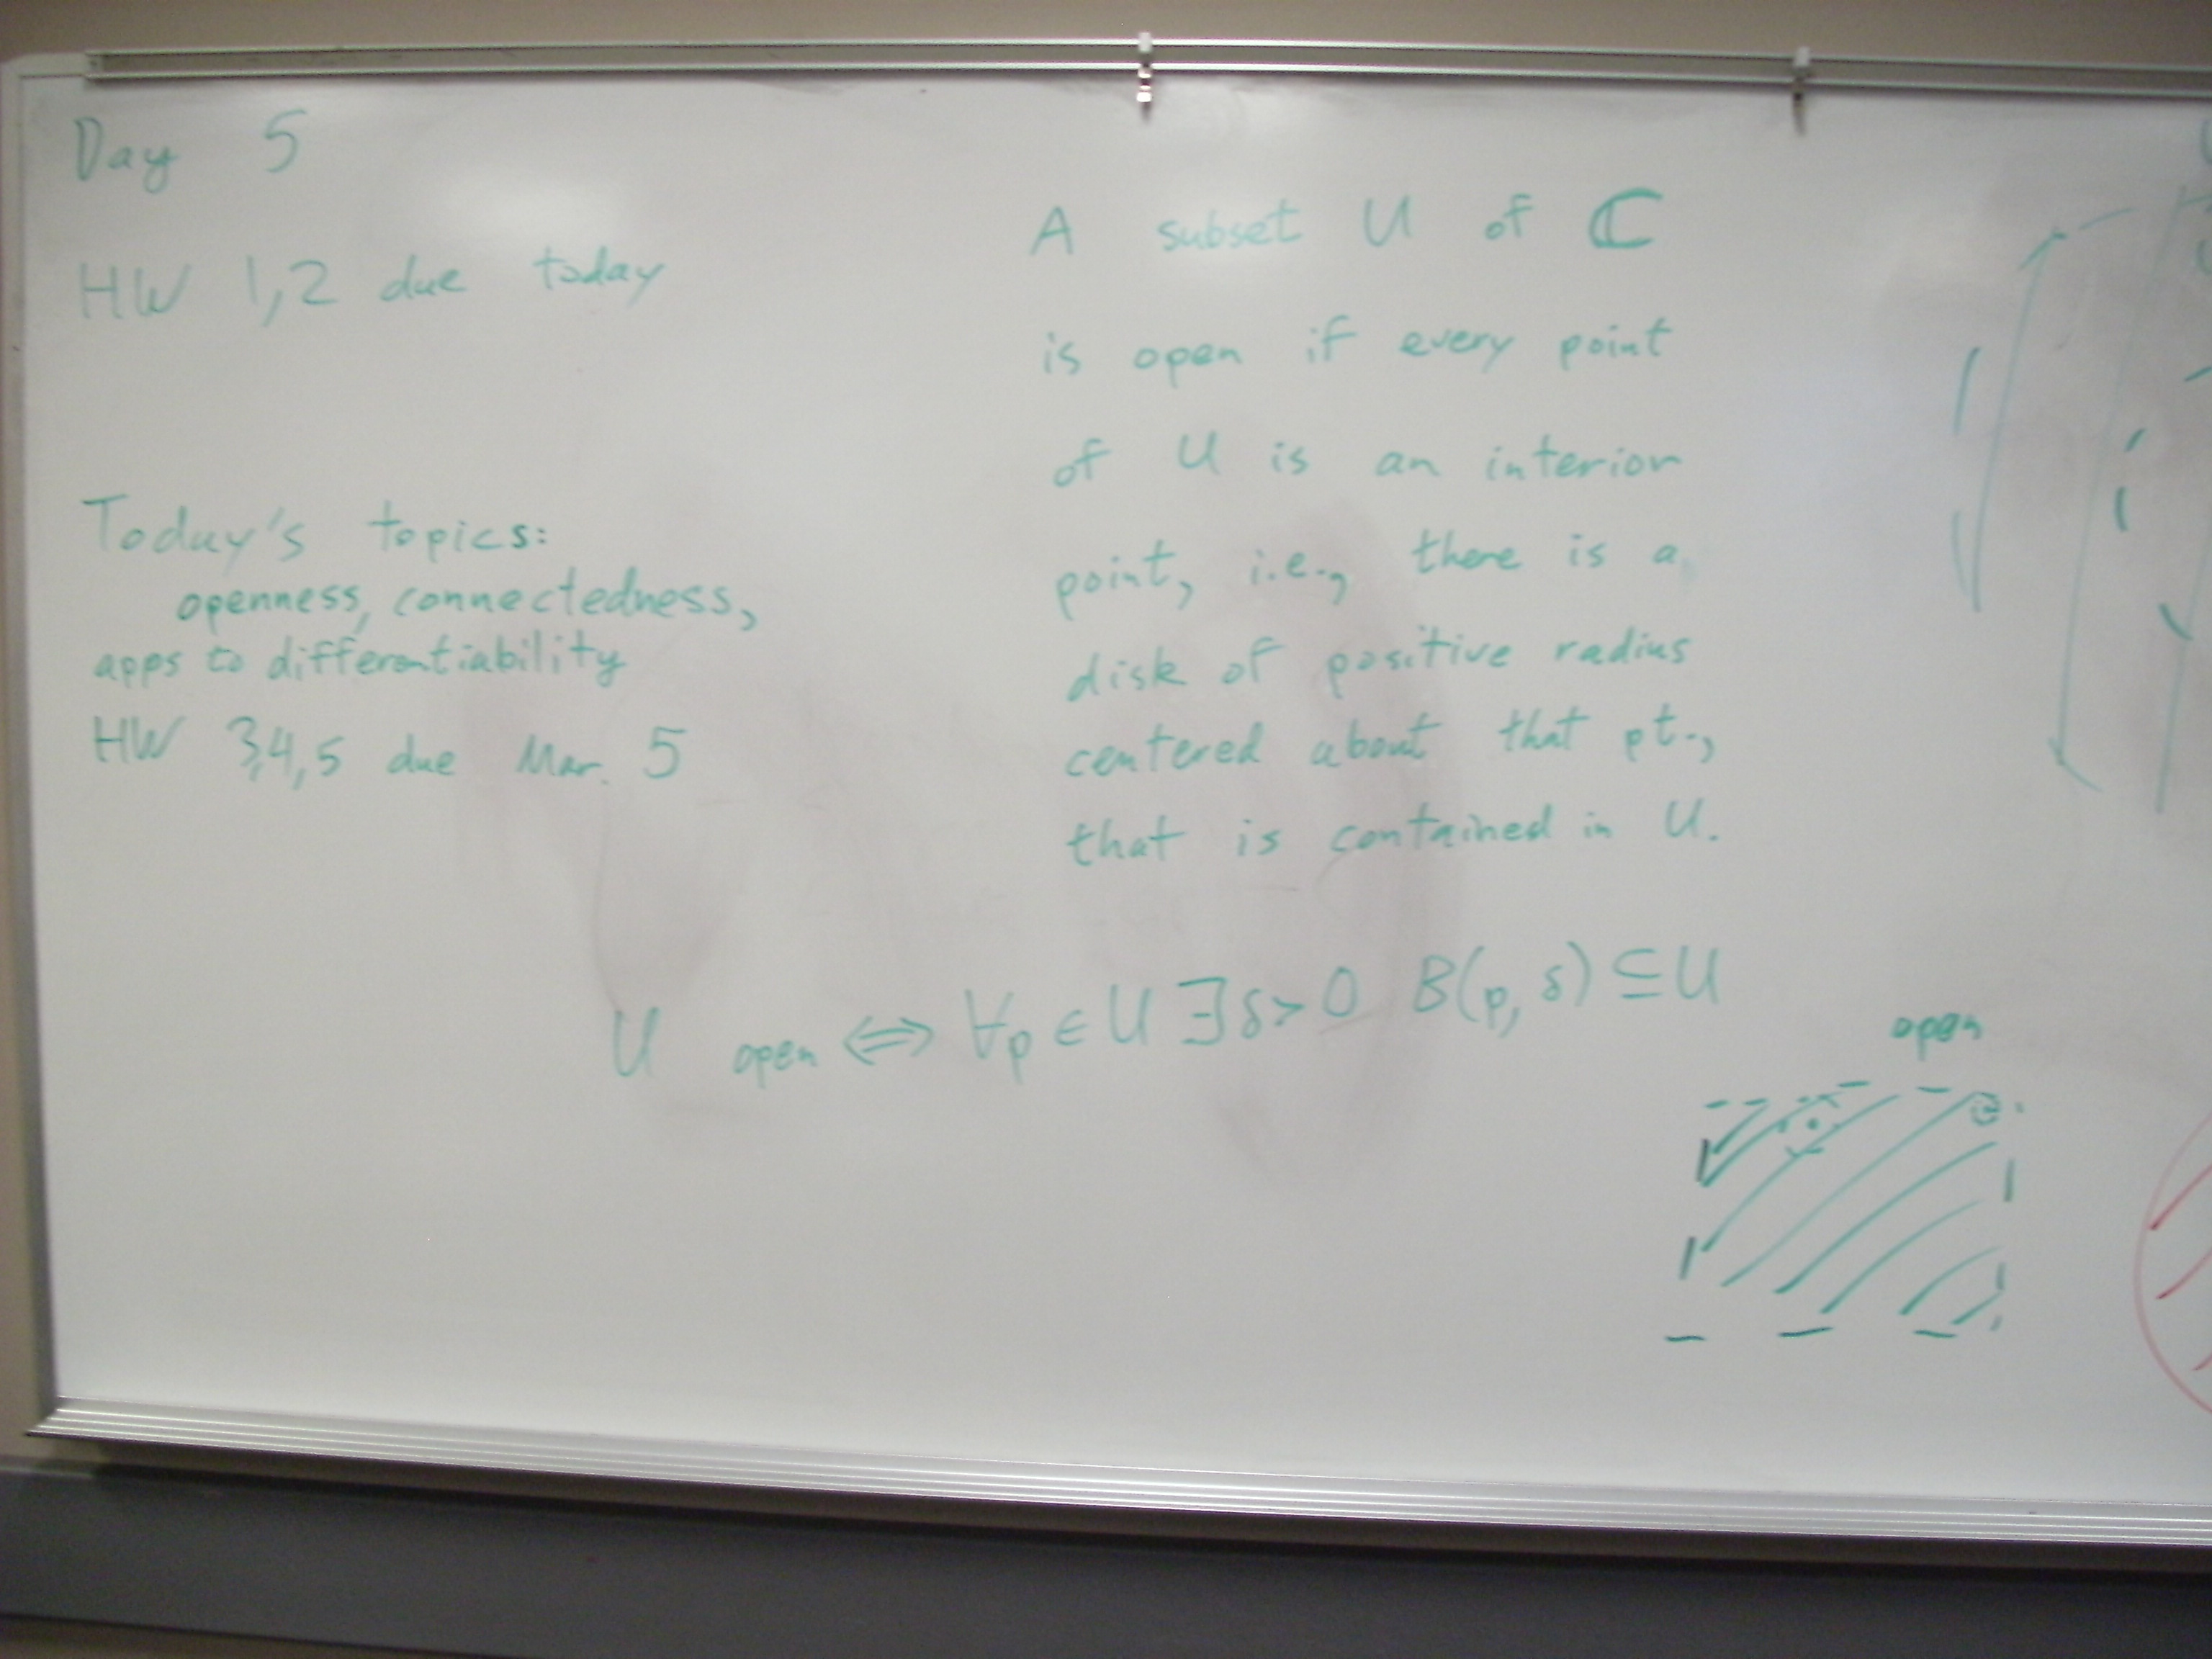 Day 5
HW 1,2 due today
Today's topics:
openness, connectedness,
apps to differentiability
HW 3,4,5 due Mar. 5
A subset U of ℂ
is open if every point
of U is an interior
point, i.e., there is a
disk of positive radius
centered about that pt.,
that is contained in U.
U open ⇔ ∀p ∈ U ∃ δ > 0 B(p, δ) ⊆ U
open